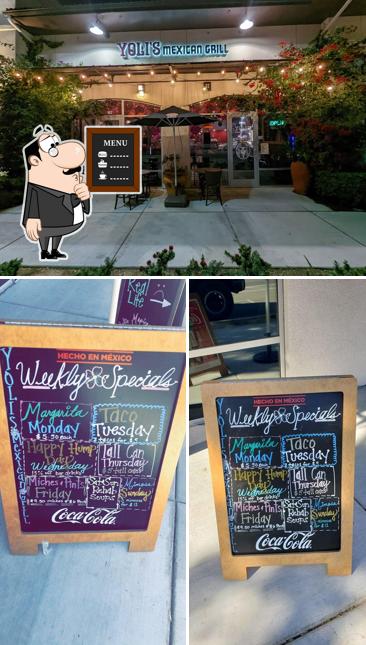 YOLI'S MEXICAN GRILL
OPEN
MENU
Real
Life
HECHO EN MÉXICO
Weekly Specials
Margarita
Monday
$5.50 each
Taco
Tuesday
Happy Hump
Day
Wednesday
Tall Can
Thursday
Miches & Pints
Friday
Sat & Sun
Rehab
Soups
Mimosa
Sunday
Coca-Cola
HECHO EN MÉXICO
Weekly Specials
Margarita
Monday
$5.50 each
Taco
Tuesday
Happy Hump
Day
Wednesday
Tall Can
Thursday
Miches & Pints
Friday
Sat & Sun
Rehab
Soups
Mimosa
Sunday
Coca-Cola